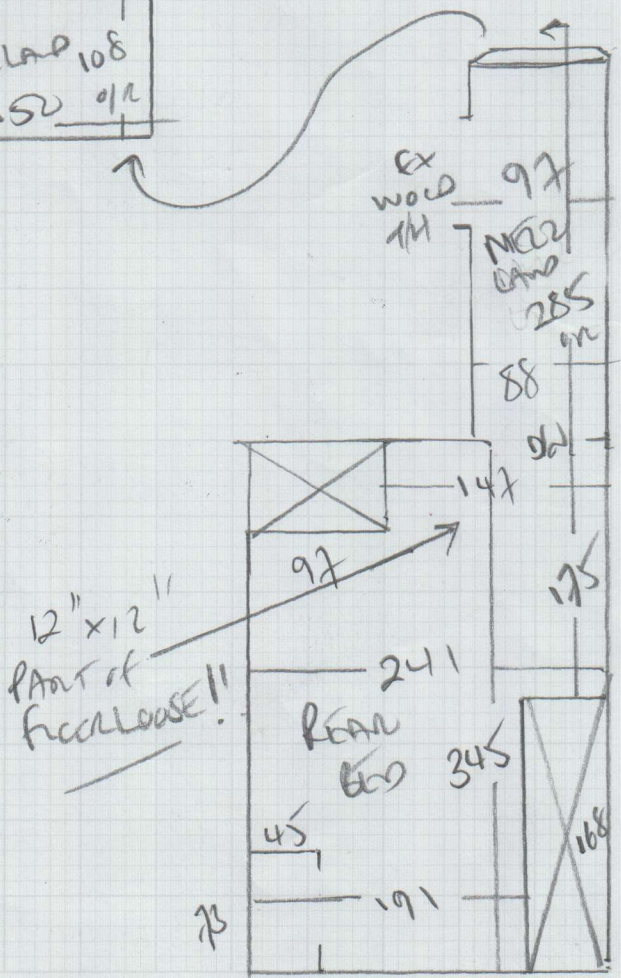 LAND 108
50 O/R
EX
WOLD
97
MEZZ
LAND
285
O/R
88
D/W
147
97
175
12" x 12"
PART OF
FLOOR LOOSE!!
241
REAR
BED
345
45
168
191
73